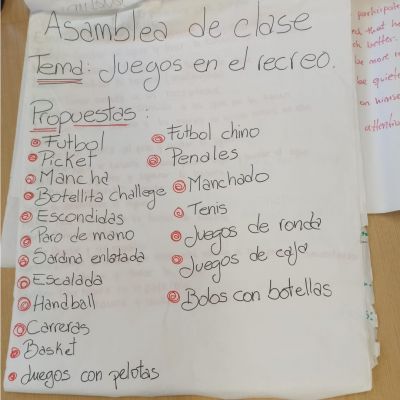 Asamblea de clase
Tema: Juegos en el recreo.
Propuestas:
Futbol
Picket
Mancha
Botellita challege
Escondidas
Paro de mano
Sardina enlatada
Escalada
Handball
Carreras
Basket
Juegos con pelotas
Futbol chino
Penales
Manchado
Tenis
Juegos de ronda
Juegos de caja
Bolos con botellas
participate
better.
be more
be quiet